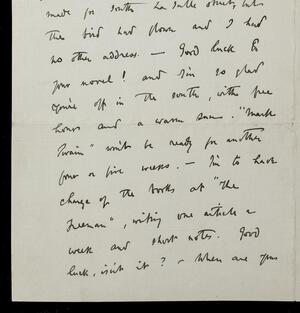 made for South La Salle Street, but
the bird had flown and I had
no other address. — Good luck to
your novel! and I'm so glad
you're off in the south, with free
hours and a warm sun. "Mark
Twain" won't be ready for another
four or five weeks. — I'm to have
charge of the books at "The
Freeman", writing one article a
week and short notes. Good
luck, isn't it? — When are you